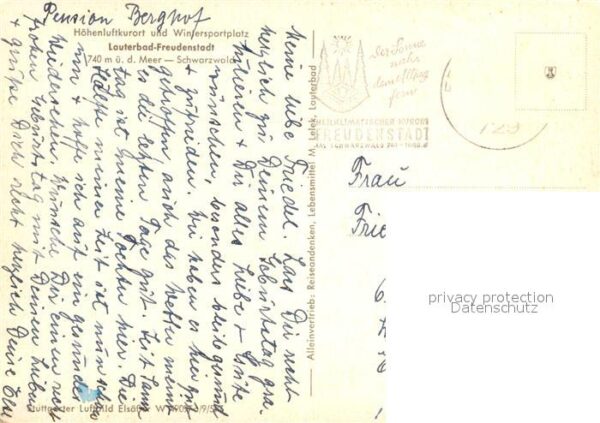 Pension Berghof
Höhenluftkurort und Wintersportplatz
Lauterbad-Freudenstadt
740 m ü. d. Meer — Schwarzwald
Meine liebe Friedel. Lass Dir recht
herzlich zu Deinem Geburtstag gra-
tulieren & Dir alles Liebe & Gute
wünschen, besonders bleibe gesund
& zufrieden. Wir haben es hier gut
getroffen, auch das Wetter meint
es die letzten Tage gut. Seit Sams-
tag ist meine Tochter hier. Die
Hälfte meiner Zeit ist nun schon
um & hoffe ich auf ein gesundes
Wiedersehen. Wünsche Dir einen recht
frohen Geburtstag mit Deinen Lieben
& grüße Dich recht herzlich Deine
Alleinvertrieb: Reiseandenken, Lebensmittel M. Lelek, Lauterbad
Stuttgarter Luftbild Elsäßer
der Sonne
nah
dem Alltag
fern
HEILKLIMATISCHER KURORT
FREUDENSTADT
IM SCHWARZWALD
729
Frau
Frie
privacy protection
Datenschutz